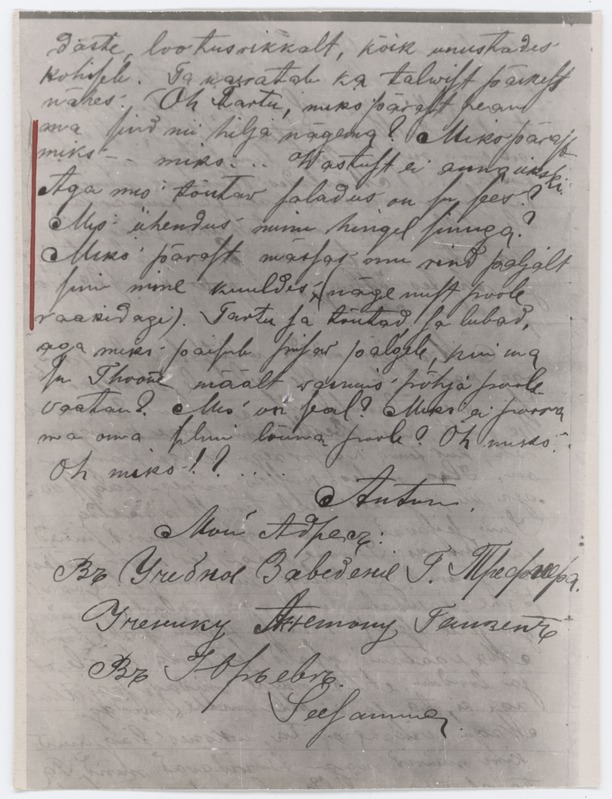 lootusrikkalt, kõik unustades
Ta ka talwist päikest
nähes. Oh Tartu, miks pärast pean
ma sind nii hilja nägema? Miks pärast
miks - - miks... Wastust ei anna ükski.
Aga mis tõutaw saladus on su sees?
Mis ühendus minu hingel sinuga?
Miks pärast mässas omu rind paljalt
sinu nime kuuldes, (nägemist poole
raasidagi). Tartu sa tõutad, sa lubad,
aga miks paisub pisar palgele, kui ma
su Thoome mäält põhja poole
vaatan? Mis on seal? Miks ei poora
ma oma silmi lõuna poole? Oh miks..
Oh miks!?....
Anton.
Мой Адресъ:
Въ Учебное Заведенiе Г. Треффнера.
Ученику Антону Ганзенъ
Въ Юрьевъ.